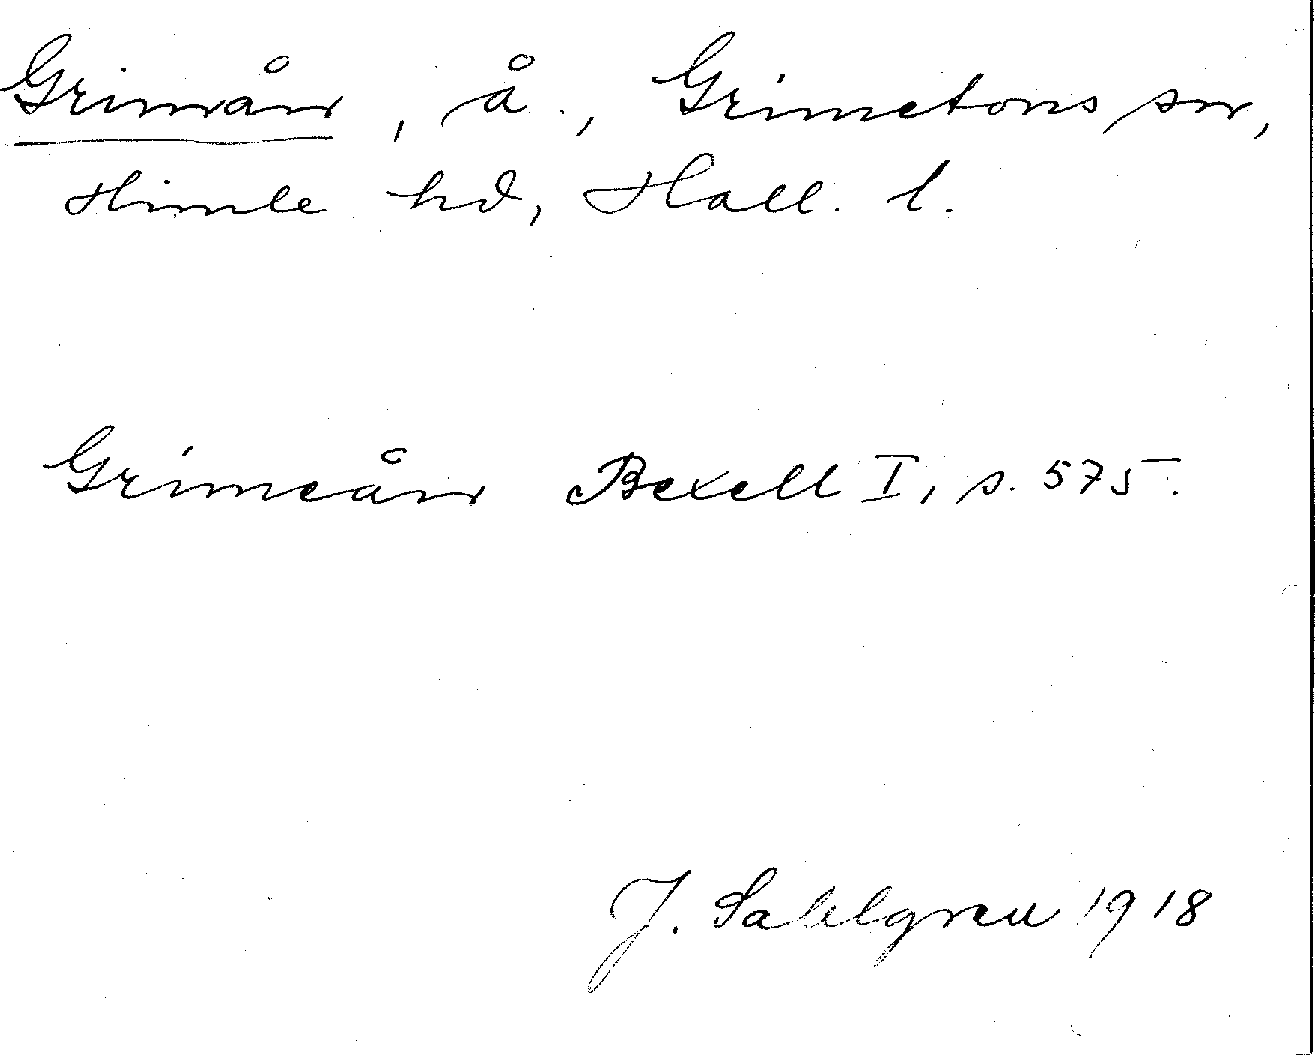 Grimån, å., Grimetons sn,
Himle hd, Hall. l.
Grimeån Bexell I, s. 575.
J. Sahlgren 1918